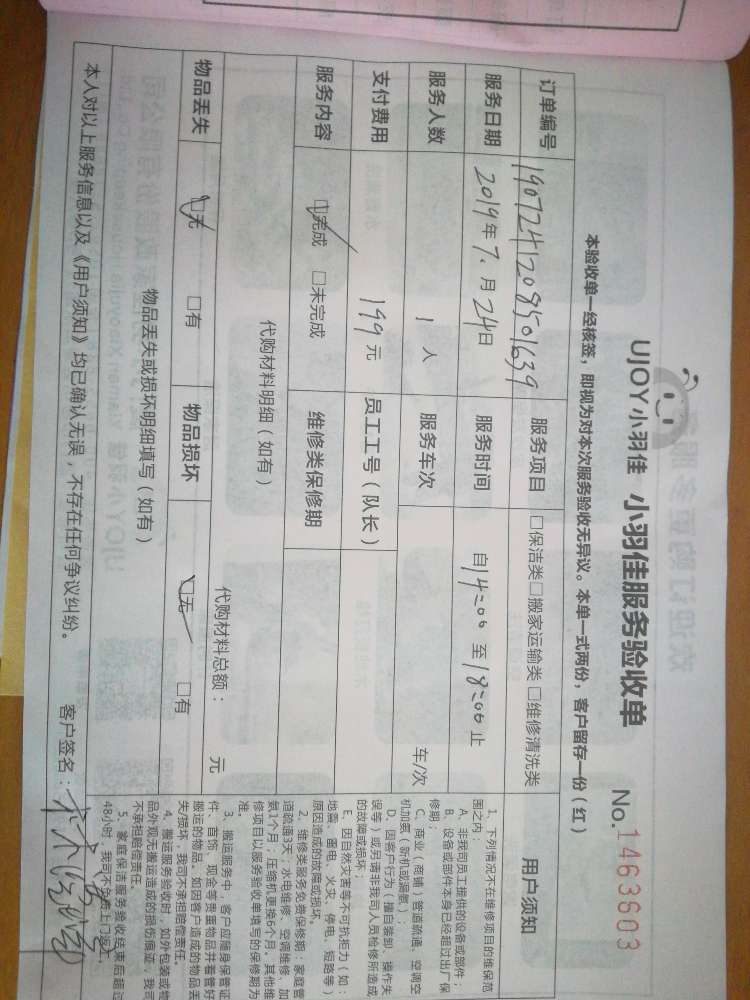 UJOY小羽佳 小羽佳服务验收单 No.1463603
本验收单一经核签，即视为对本次服务验收无异议。本单一式两份，客户留存一份（红）
订单编号 1907241208501639 服务项目 □保洁类□搬家运输类 □维修清洗类
服务日期 2019年7.月24日 服务时间 自14:00 至18:00止
服务人数 1 人 服务车次 车/次
支付费用 199元 员工工号（队长）
服务内容 □完成 □未完成 维修类保修期
代购材料明细（如有）
代购材料总额： 元
物品丢失 □无 □有 物品损坏 □无 □有
物品丢失或损坏明细填写（如有）
本人对以上服务信息以及《用户须知》均已确认无误，不存在任何争议纠纷。 客户签名：
用户须知
1、下列情况不在维修项目的维保范
围之内：
A、非我司员工提供的设备或部件；
B、设备或部件本身已经超过出厂保
修期；
C、商业（商铺）管道疏通、空调空
机加氨（新机或漏氨）；
D、因客户行为（擅自装卸、操作失
误等）或另请非我司人员检修所造成
的故障或损坏；
E、因自然灾害等不可抗拒力（如：
地震、雷电、火灾、停电、短路等）
原因造成的故障或损坏。
2、维修类服务免费保修期：家庭管
道疏通3天；水电维修、空调维修、加
氨1个月；压缩机更换6个月。其他维
修项目以服务验收单填写的保修期为
准。
3、搬运服务中，客户应随身保管证
件、首饰、现金等贵重物品并看管好
搬运的物品。如因客户造成的物品丢
失/损坏，我司不承担赔偿责任。
4、搬运服务验收时，如外包装或物
品外观无搬运造成的损伤痕迹，我司
不承担赔偿责任。
5、家庭保洁服务验收结束后超过
48小时，我司不免费上门返工。